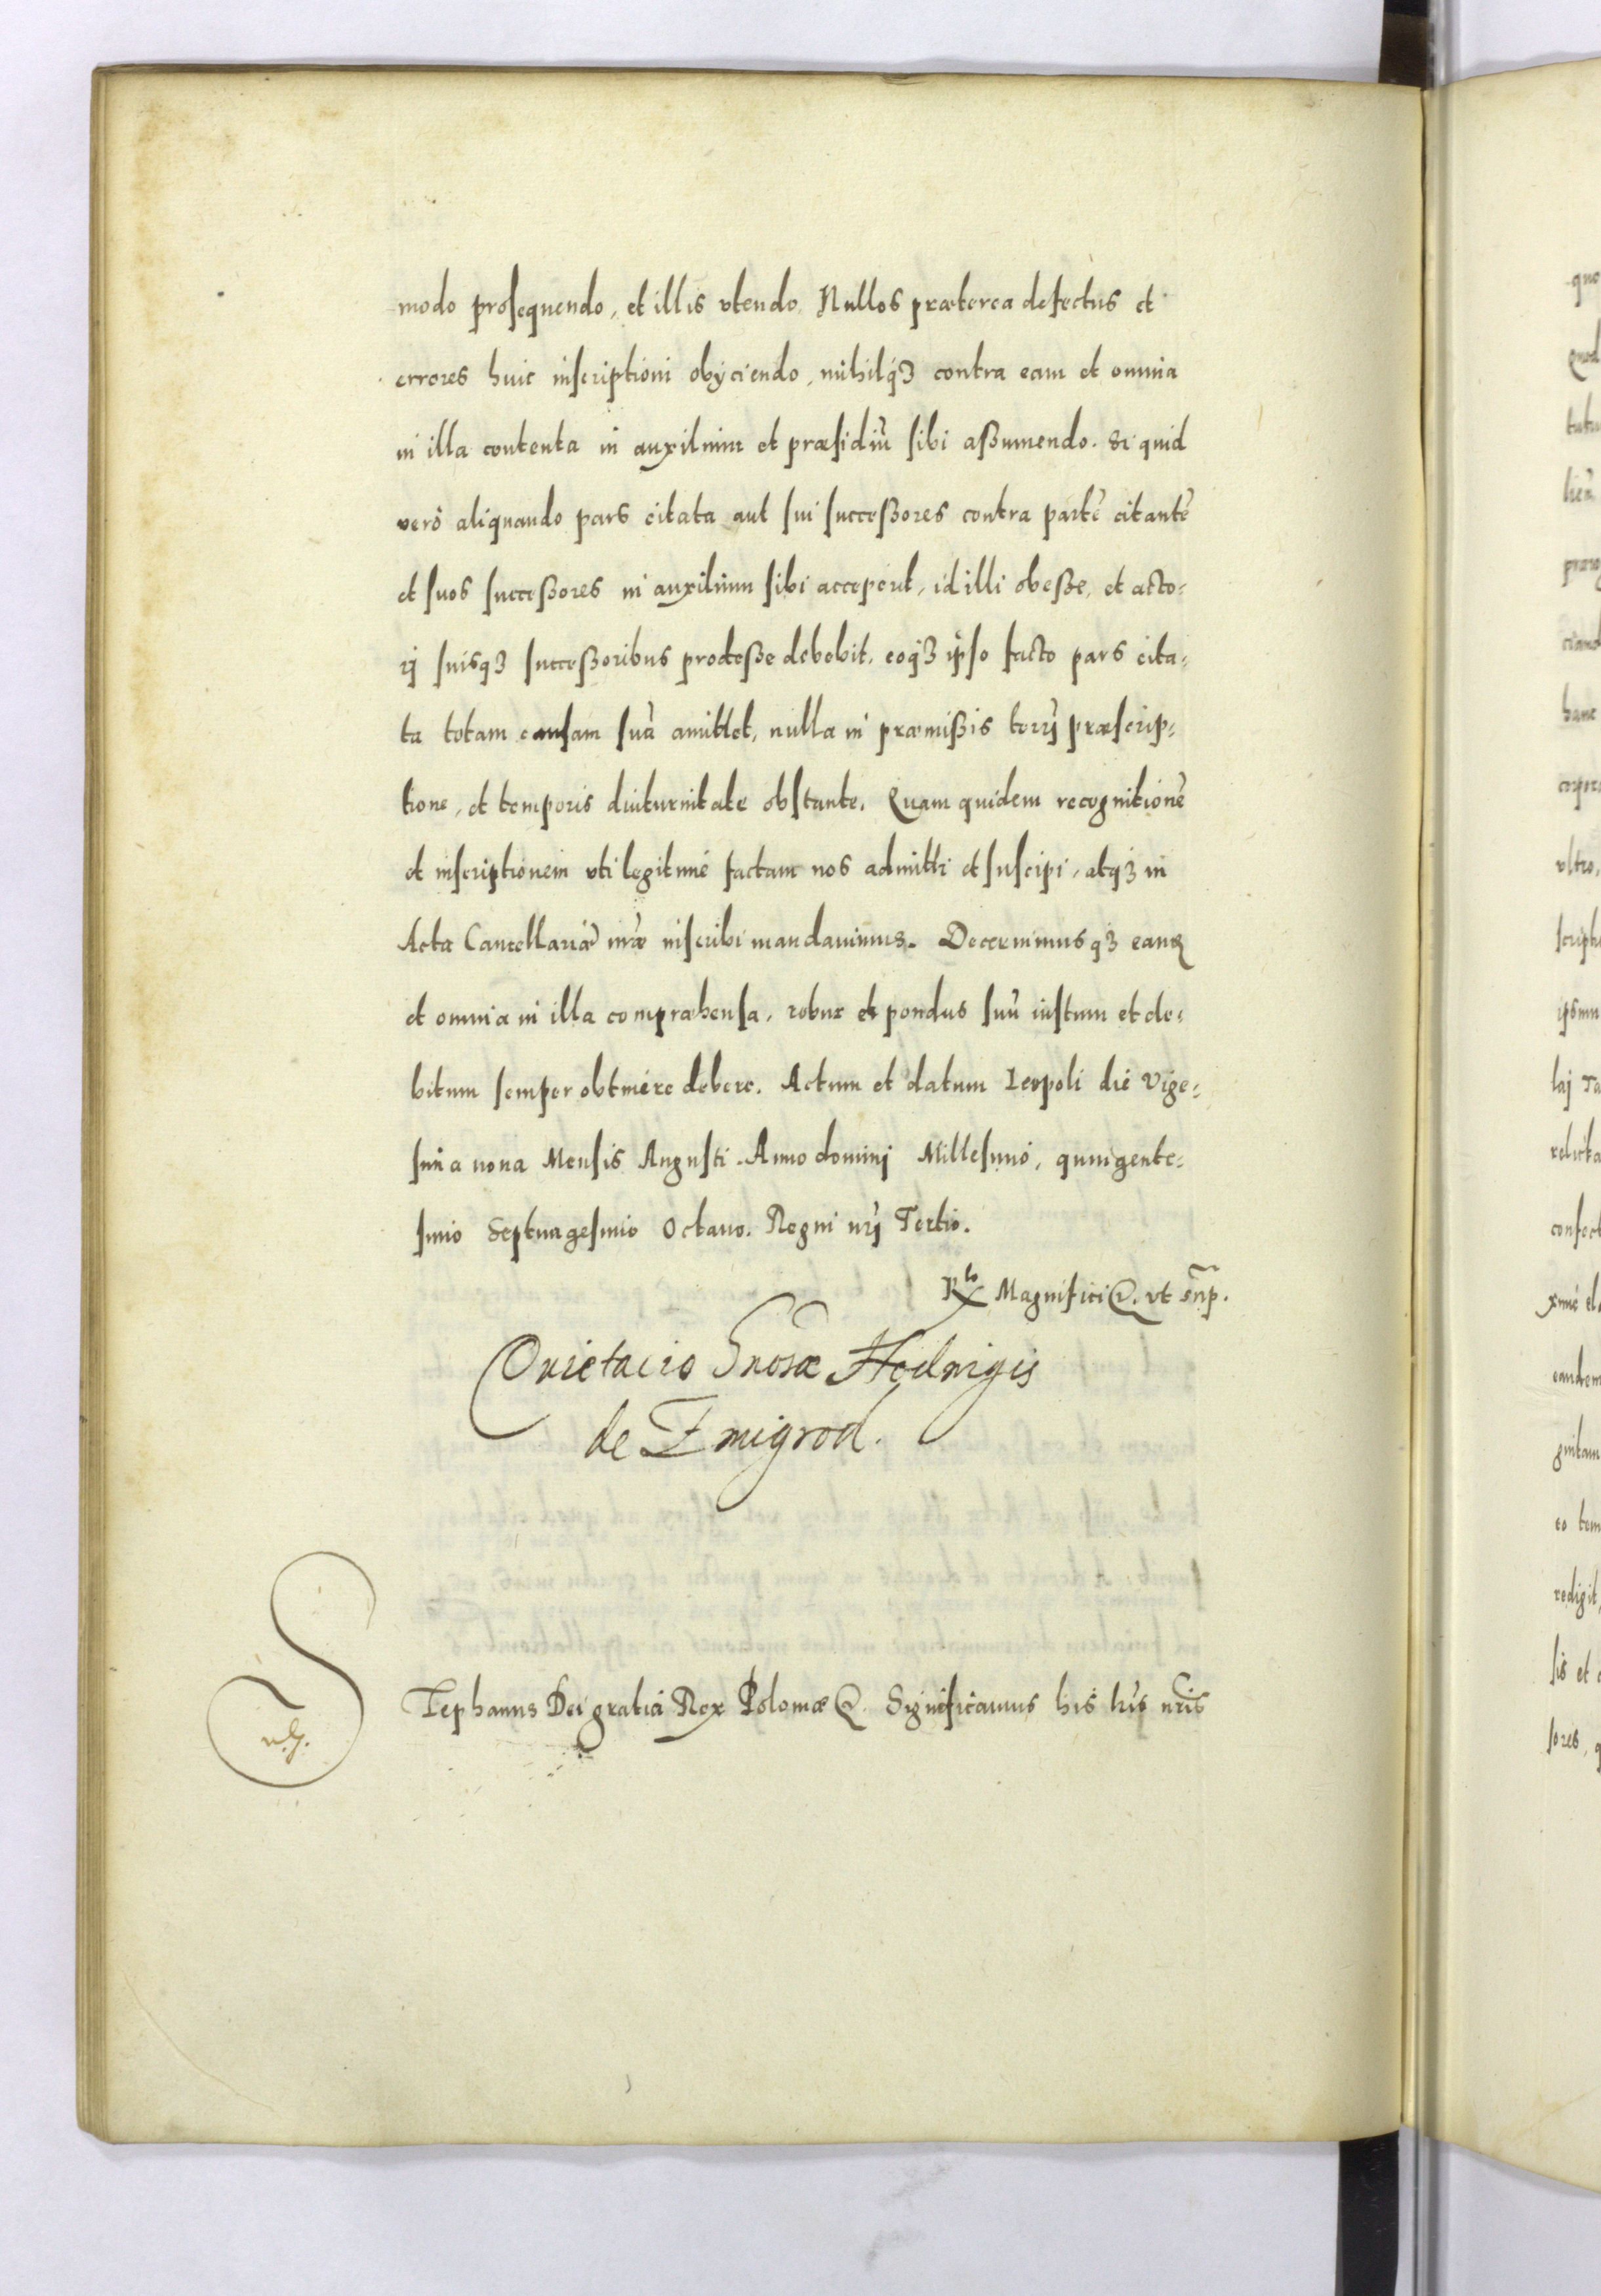 modo prosequendo, et illis vtendo. Nullos præterea defectus et
errores huic inscriptioni obÿciendo, nihilq3 contra eam et omnia
in illa contenta in auxilium et præsidiũ sibi aßumendo. Si quid
verò aliquando pars citata aut sui succeßores contra partẽ citantẽ
et suos succeßores in auxilium sibi acceperit, id illi obeße, et acto=
rj suisq3 succeßoribus prodeße debebit, eoq3 ipso facto pars cita=
ta totam causam suã amittet, nulla in præmißis terrj præscrip=
tione, et temporis diuturnitate obstante. Quam quidem recognitionẽ
et inscriptionem vti legitimè factam nos admitti et suscipi, atq3 in
Acta Cancellariæ nr̃æ inscribi mandauimus. Decernimusq3 eam
et omnia in illa compræhensa, robur et pondus suũ iustum et de=
bitum semper obtinere debere. Actum et datum Leopoli die Vige=
sima nona Mensis Augusti. Anno dominj Millesimo, quingente=
simo Septuagesimo Octauo. Regni nrj Tertio.
Rtõ Magnifici &. vt sũp.
Quietacio Gñosæ Hedwigis
de Zmigrod.
S
Tephanus Dei gratia Rex Poloniæ &. Significamus his lrĩs nrĩs